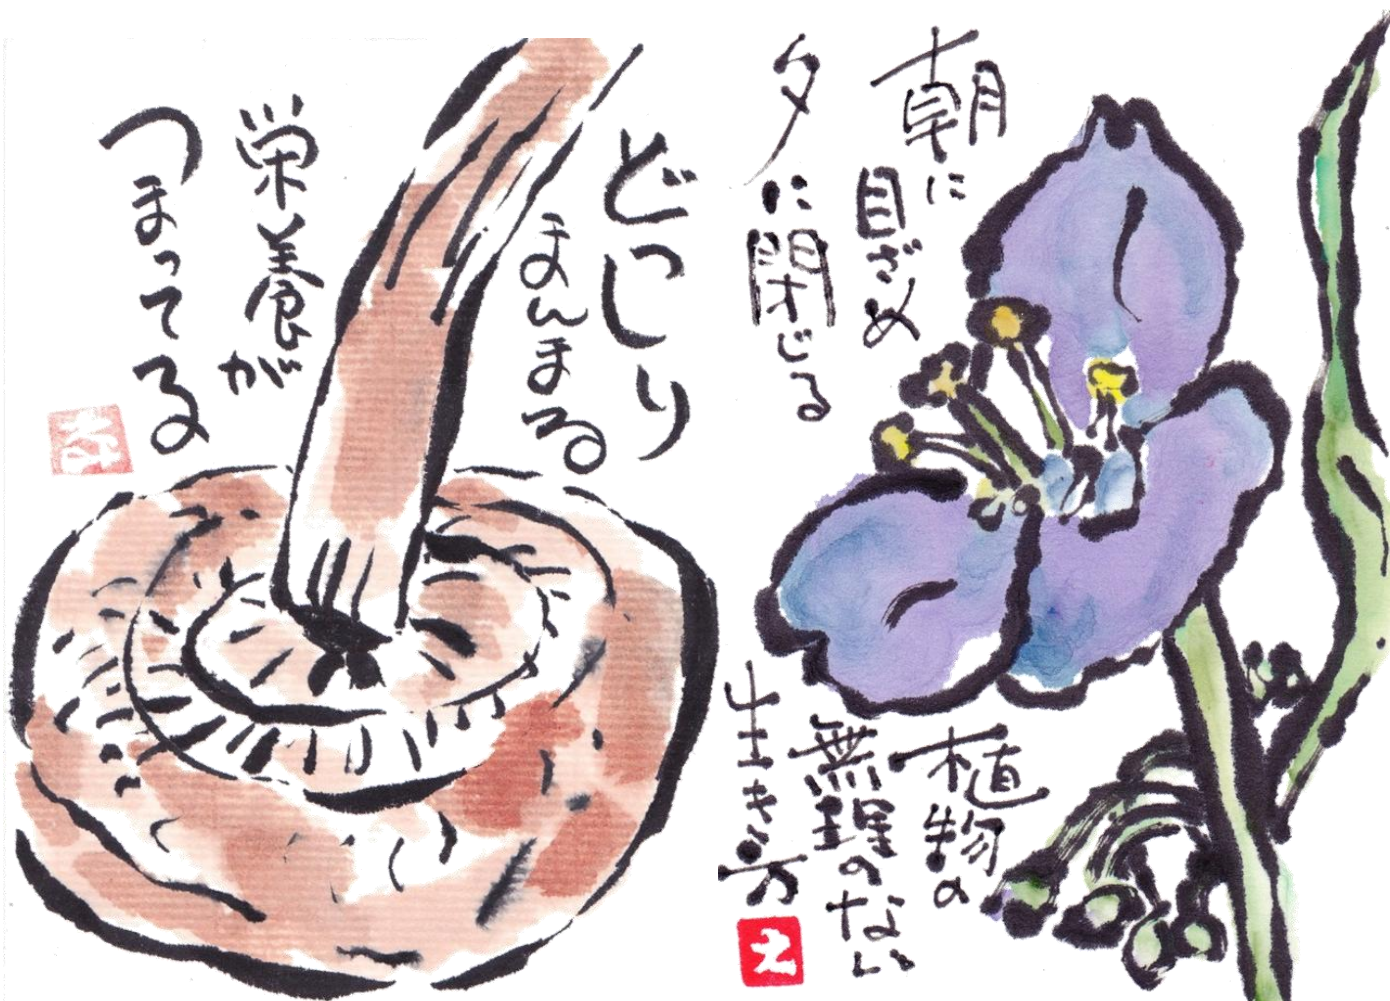 どっしり
まんまる
栄養が
つまってる
朝に
目ざめ
夕に閉じる
植物の
無理のない
生き方